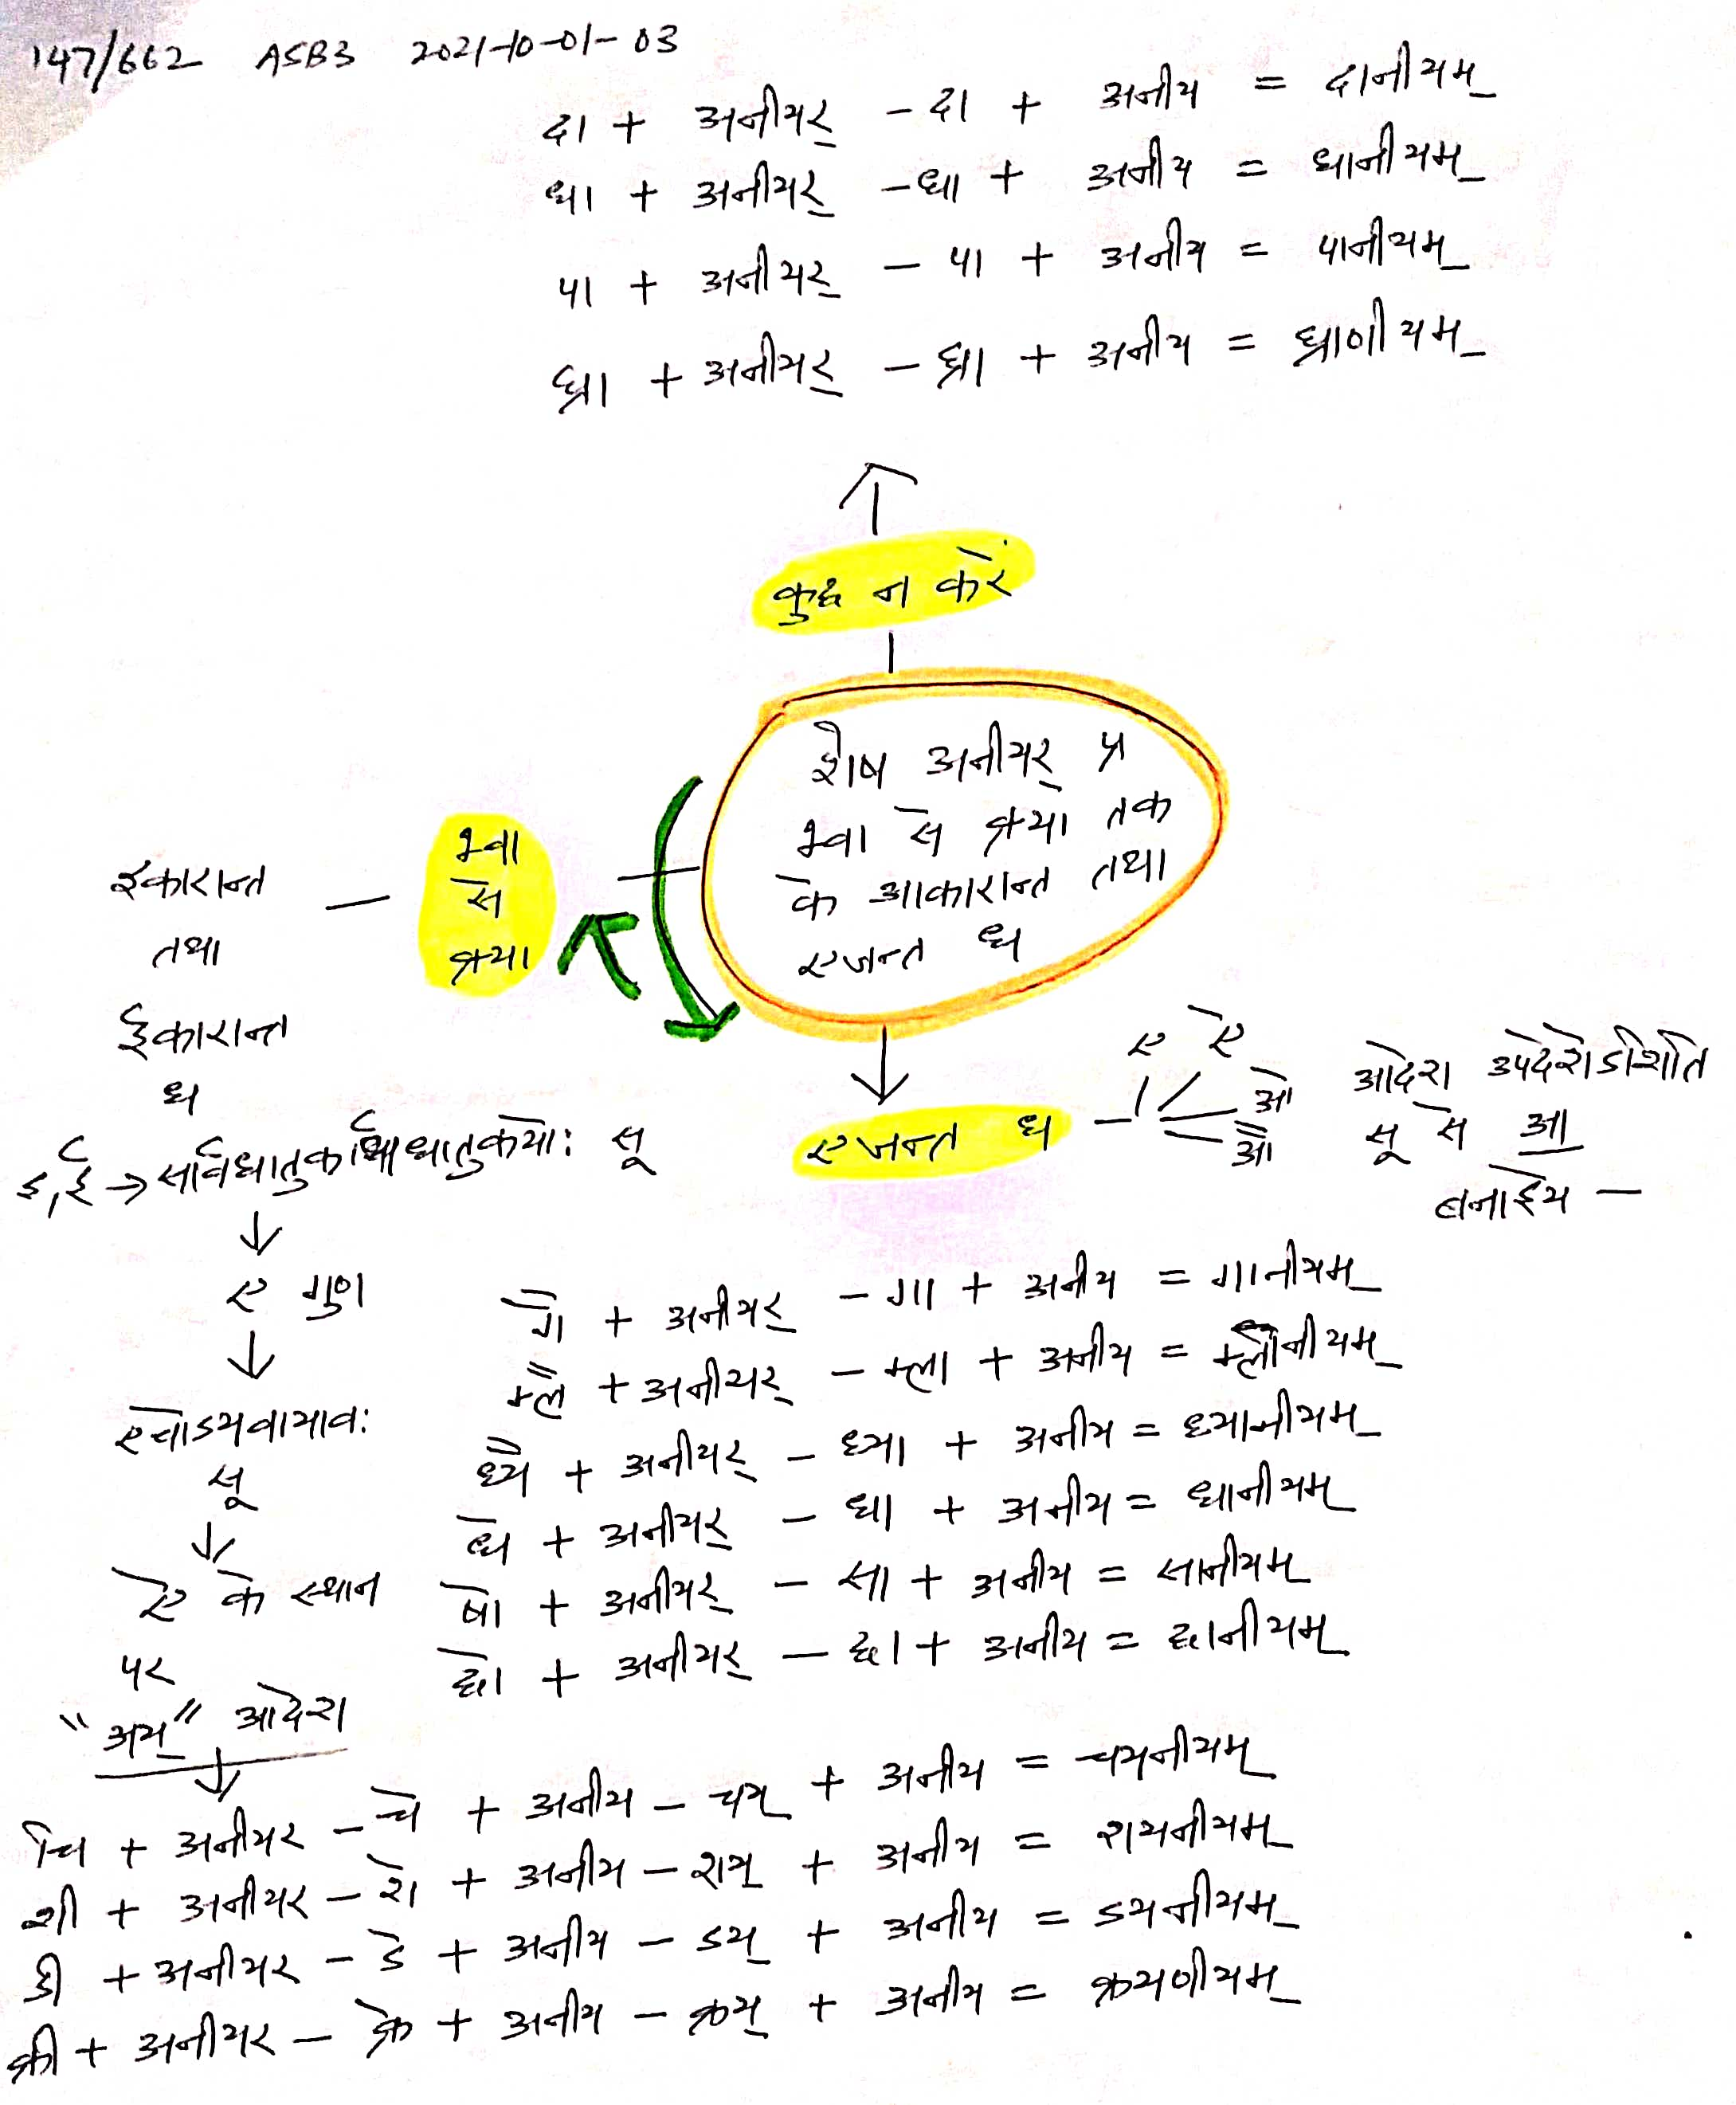 147/662 ASB3 2021-10-01-03
दा + अनीयर् - दा + अनीय = दानीयम्
धा + अनीयर् - धा + अनीय = धानीयम्
पा + अनीयर् - पा + अनीय = पानीयम्
घ्रा + अनीयर् - घ्रा + अनीय = घ्राणीयम्
कुछ न करें
शेष अनीयर् प्र
भ्वा से क्र्या तक
के आकारान्त तथा
एजन्त धा
भ्वा
से
क्र्या
इकारान्त
तथा
ईकारान्त
धा
इ, ई → सार्वधातुकार्धधातुकयोः सू
↓
ए गुण
↓
एचोऽयवायावः
सू
↓
ऐ के स्थान
पर
"अय्" आदेश
↓
एजन्त धा
ए ऐ
ओ
औ
आदेश उपदेशेऽशिति
सू से आ
बनाइये -
गै + अनीयर् - गा + अनीय = गानीयम्
म्लै + अनीयर् - म्ला + अनीय = म्लानीयम्
ध्यै + अनीयर् - ध्या + अनीय = ध्यानीयम्
धे + अनीयर् - धा + अनीय = धानीयम्
षो + अनीयर् - सा + अनीय = सानीयम्
छो + अनीयर् - छा + अनीय = छानीयम्
चि + अनीयर - चे + अनीय - चय् + अनीय = चयनीयम्
शी + अनीयर - शे + अनीय - शय् + अनीय = शयनीयम्
डी + अनीयर - डे + अनीय - डय् + अनीय = डयनीयम्
क्री + अनीयर - क्रे + अनीय - क्रय् + अनीय = क्रयणीयम्